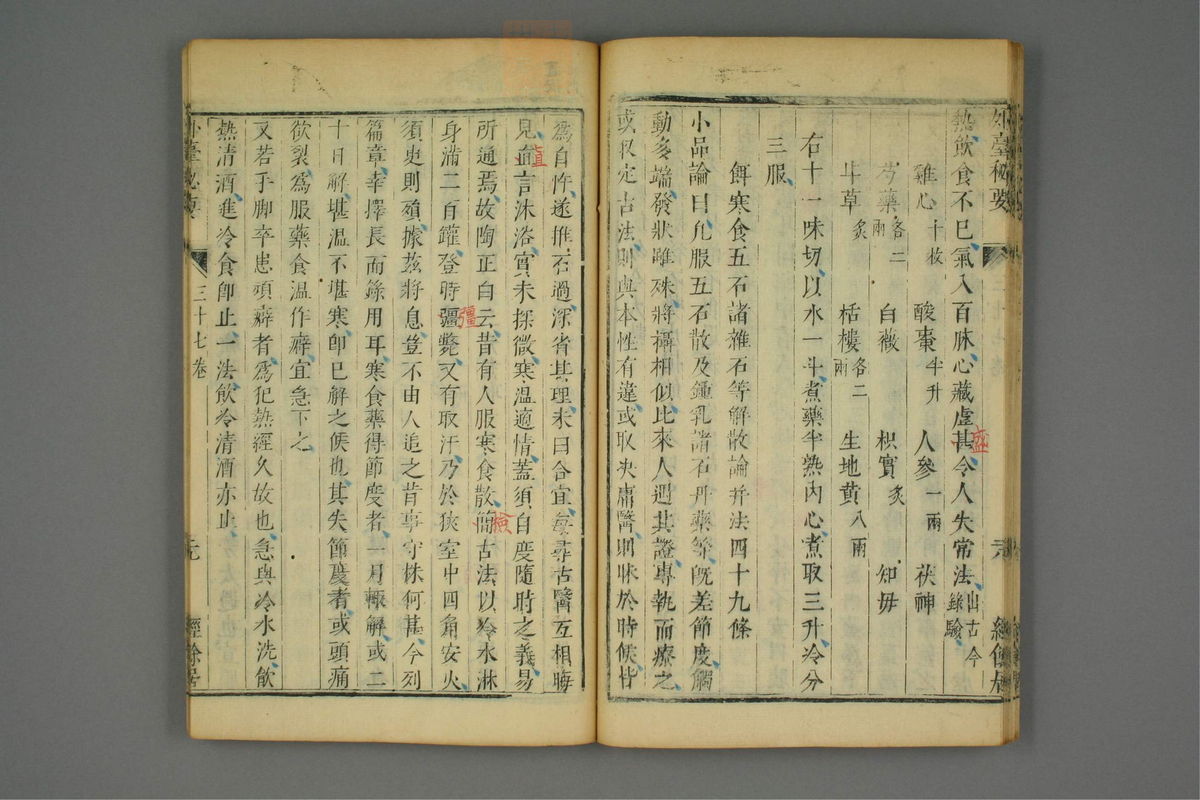 外臺秘要
熱飲食不已氣入百脉心藏虛甚令人失常法出古今錄驗
盛
雞心十枚 酸棗半升 人參一兩 茯神
芍藥各二兩 白薇 枳實炙 知母
甘草炙 栝樓各二兩 生地黃八兩
右十一味切以水一斗煮藥半熟內心煮取三升冷分
三服
餌寒食五石諸雜石等解散論并法四十九條
小品論曰凡服五石散及鍾乳諸石丹藥等既差節度觸
動多端發狀雖殊將攝相似比來人遇其證專執而療之
或取定古法則與本性有違或取決庸醫則昧於時候皆
為自忤遂推石過深省其理未曰合宜每尋古醫互相晦
見直言沐浴實未探微寒溫適情蓋須自度隨時之義易
直
所通焉故陶正白云昔有人服寒食散簡古法以冷水淋
檢
身滿二百罐登時彊斃又有取汗乃於狹室中四角安火
彊
須臾則殞據茲將息豈不由人追之昔事守株何甚今列
篇章幸擇長而錄用耳寒食藥得節度者一月輒解或二
十日解堪溫不堪寒即已解之候也其失節度者或頭痛
欲裂為服藥食溫作癖宜急下之
又若手脚卒患頑癖者為犯熱經久故也急與冷水洗飲
熱清酒進冷食即止一法飲冷清酒亦止
外臺秘要 三十七卷 經餘居